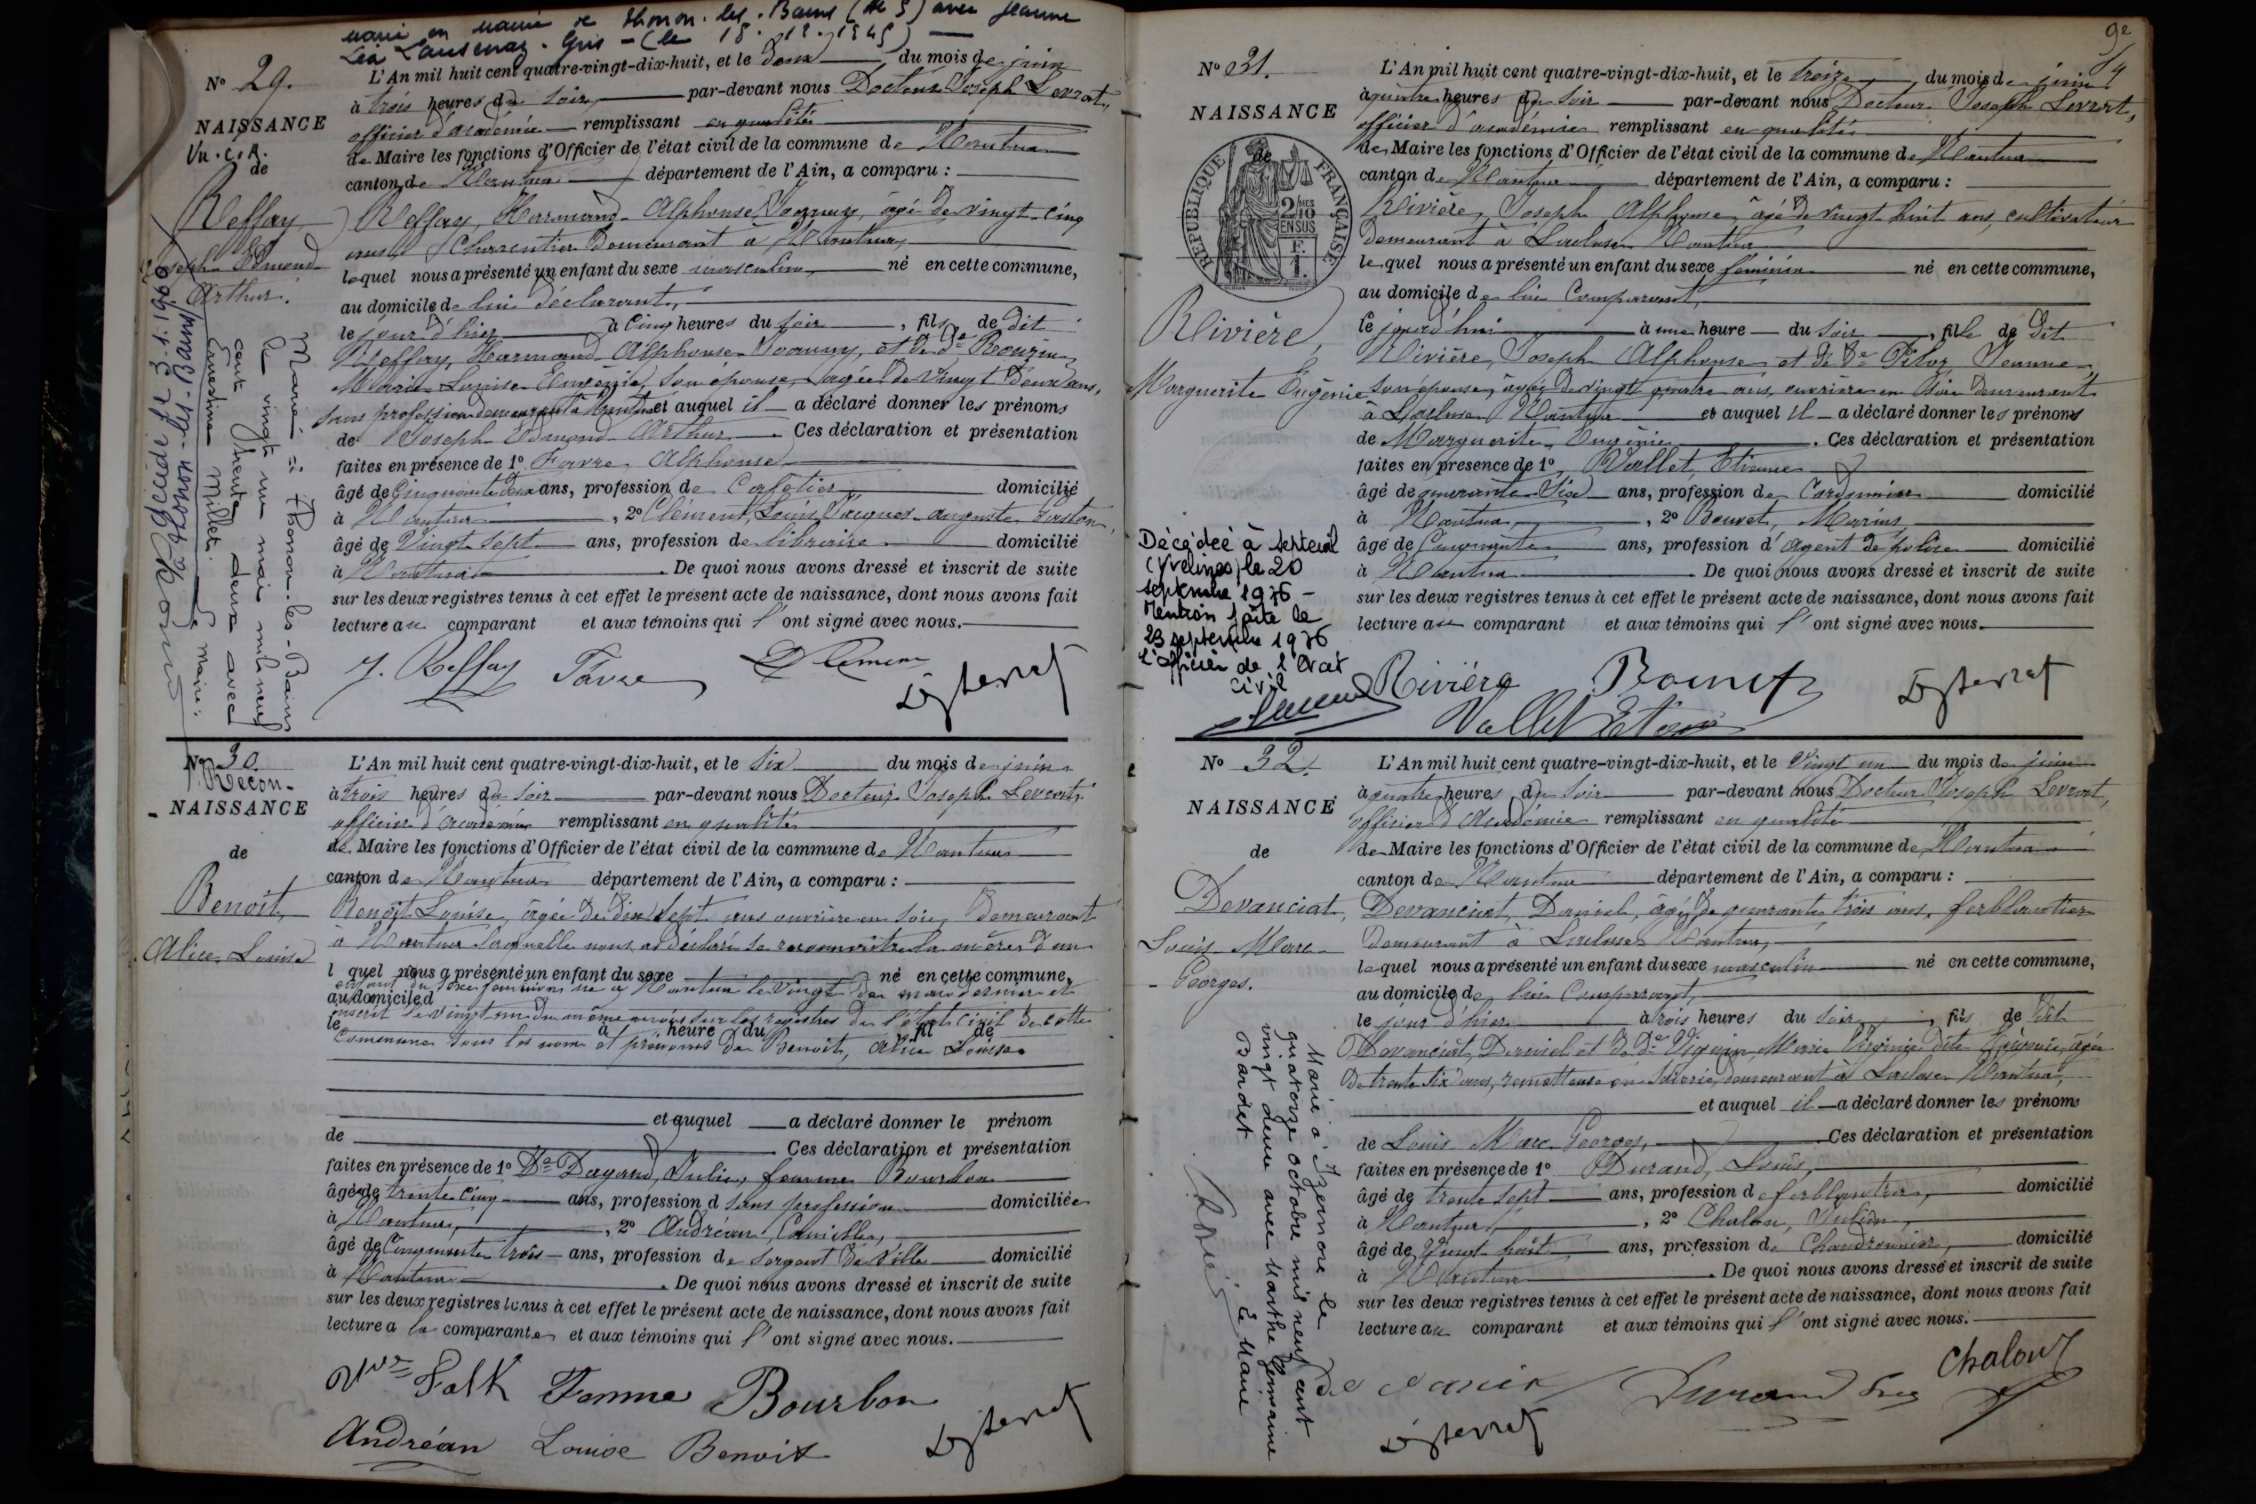 marié en mairie de Thonon-les-Bains (Hte S) avec Jeanne
Léa - Gris - (le 18.12.1945)
N° 29.
NAISSANCE
de
Reffay
Joseph Edmond
Arthur.
L'An mil huit cent quatre-vingt-dix-huit, et le deux du mois de juin
à trois heures du soir par-devant nous Docteur Joseph Levrat,
officier d'académie remplissant en qualité
de Maire les fonctions d'Officier de l'état civil de la commune de Nantua
canton de Nantua département de l'Ain, a comparu :
Reffay, Harmand Alphonse Joanny, âgé de vingt-cinq
ans, Charpentier demeurant à Nantua,
lequel nous a présenté un enfant du sexe masculin né en cette commune,
au domicile de lui déclarant,
le jour d'hier à cinq heures du soir, fils de dit
Reffay, Harmand Alphonse Joanny, et de De
Marie Louise Eugénie, son épouse, âgée de vingt deux ans,
sans profession demeurant à Nantua et auquel il a déclaré donner les prénoms
de Joseph Edmond Arthur. Ces déclaration et présentation
faites en présence de 1° Favre, Alphonse
âgé de Cinquante deux ans, profession de Cafetier domicilié
à Nantua, 2° Clément, Louis Jacques Auguste Gaston,
âgé de Vingt sept ans, profession de libraire domicilié
à Nantua. De quoi nous avons dressé et inscrit de suite
sur les deux registres tenus à cet effet le présent acte de naissance, dont nous avons fait
lecture au comparant et aux témoins qui l'ont signé avec nous.
J. Reffay Favre Clément
Dr Levrat
Marié à Thonon-les-Bains
le vingt un mai mil neuf
cent trente deux avec
Ernestine Millet.
Le Maire :
Décédé le 3.1.1960
à Thonon-les-Bains
N° 30.
Recon.
NAISSANCE
de
Benoit,
Alice Louise
L'An mil huit cent quatre-vingt-dix-huit, et le six du mois de juin
à trois heures du soir par-devant nous Docteur Joseph Levrat,
officier d'académie remplissant en qualité
de Maire les fonctions d'Officier de l'état civil de la commune de Nantua
canton de Nantua département de l'Ain, a comparu :
Benoit Louise, âgée de dix sept ans ouvrière en soie, demeurant
à Nantua laquelle nous a déclaré se reconnaître la mère d'un
l quel nous a présenté un enfant du sexe né en cette commune,
enfant du sexe féminin né à Nantua le vingt de mars dernier et
au domicile d
inscrit le vingt un du même mois sur les registres de l'état civil de cette
le à heure du fil de
Commune sous les nom et prénoms de Benoit, Alice Louise.
et auquel a déclaré donner le prénom
de Ces déclaration et présentation
faites en présence de 1° De Dagand, Julie, femme Bourbon
âgée de trente cinq ans, profession d sans profession domiciliée
à Nantua, 2° Andréan, Camille,
âgé de Cinquante trois ans, profession de sergent de ville domicilié
à Nantua. De quoi nous avons dressé et inscrit de suite
sur les deux registres tenus à cet effet le présent acte de naissance, dont nous avons fait
lecture a la comparante et aux témoins qui l'ont signé avec nous.
Femme Bourbon
Andréan Louise Benoit
Dr Levrat
N° 31.
NAISSANCE
de
RÉPUBLIQUE FRANÇAISE
2/10 EN SUS
Rivière,
Marguerite Eugénie
L'An mil huit cent quatre-vingt-dix-huit, et le treize du mois de juin
à quatre heures du soir par-devant nous Docteur Joseph Levrat,
officier d'académie remplissant en qualité
de Maire les fonctions d'Officier de l'état civil de la commune de Nantua
canton de Nantua département de l'Ain, a comparu :
Rivière, Joseph Alphonse, âgé de vingt huit ans, cultivateur
demeurant à Lacluse Nantua
lequel nous a présenté un enfant du sexe féminin né en cette commune,
au domicile de lui Comparant,
le jourd'hui à une heure du soir, fille de dit
Rivière, Joseph Alphonse et de De Jeanne
son épouse, âgée de vingt quatre ans, ouvrière en soie demeurant
à Lacluse Nantua et auquel il a déclaré donner les prénoms
de Marguerite Eugénie. Ces déclaration et présentation
faites en présence de 1° Vallet, Etienne
âgé de quarante six ans, profession de Cordonnier domicilié
à Nantua, 2° Bouvet, Marius,
âgé de Cinquante ans, profession d'agent de police domicilié
à Nantua. De quoi nous avons dressé et inscrit de suite
sur les deux registres tenus à cet effet le présent acte de naissance, dont nous avons fait
lecture au comparant et aux témoins qui l'ont signé avec nous.
Décédée à Septeuil
(Yvelines) le 20
septembre 1976 -
Mention faite le
23 septembre 1976
L'officier de l'Etat
civil
Rivière Bouvet
Vallet Etienne
Dr Levrat
N° 32.
NAISSANCE
de
Devanciat,
Louis Marc
Georges.
L'An mil huit cent quatre-vingt-dix-huit, et le Vingt un du mois de juin
à quatre heures du soir par-devant nous Docteur Joseph Levrat,
officier d'Académie remplissant en qualité
de Maire les fonctions d'Officier de l'état civil de la commune de Nantua
canton de Nantua département de l'Ain, a comparu :
Devanciat, Daniel, âgé de quarante trois ans, ferblantier
demeurant à Lacluse Nantua,
lequel nous a présenté un enfant du sexe masculin né en cette commune,
au domicile de lui Comparant,
le jour d'hier à trois heures du soir, fils de dit
Devanciat, Daniel et de De Marie Virginie dite âgée
de trente six ans, demeurant à Lacluse Nantua,
et auquel il a déclaré donner les prénoms
de Louis Marc Georges, Ces déclaration et présentation
faites en présence de 1° Durand, Louis,
âgé de trente sept ans, profession de ferblantier, domicilié
à Nantua, 2° Chalon, Julien,
âgé de Vingt huit ans, profession de Chaudronnier, domicilié
à Nantua. De quoi nous avons dressé et inscrit de suite
sur les deux registres tenus à cet effet le présent acte de naissance, dont nous avons fait
lecture au comparant et aux témoins qui l'ont signé avec nous.
Marié à Izernore le
quatorze octobre mil neuf cent
vingt deux avec Marthe Germaine
Bardet
Le Maire
Durand Chalon
Dr Levrat